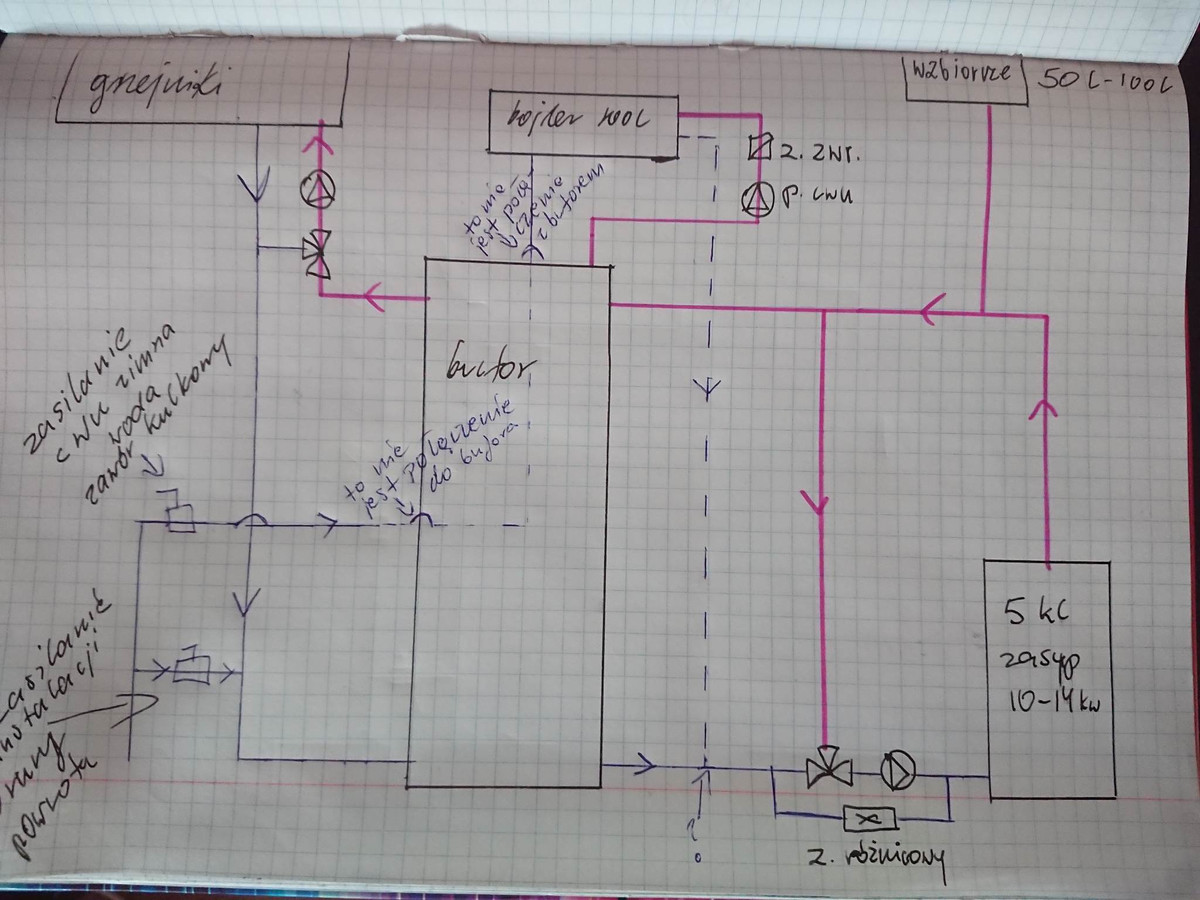 grzejniki
bojler 100L
wzbiorcze
50L-100L
z. zwr.
p. cwu
to nie
jest połą-
czenie
z buforem
bufor
zasilanie
cwu zimna
woda
zawór kulkowy
to nie
jest połączenie
do bufora
zasilanie
powrota
5 KL
zasyp
10-14 kw
?
z. różnicowy